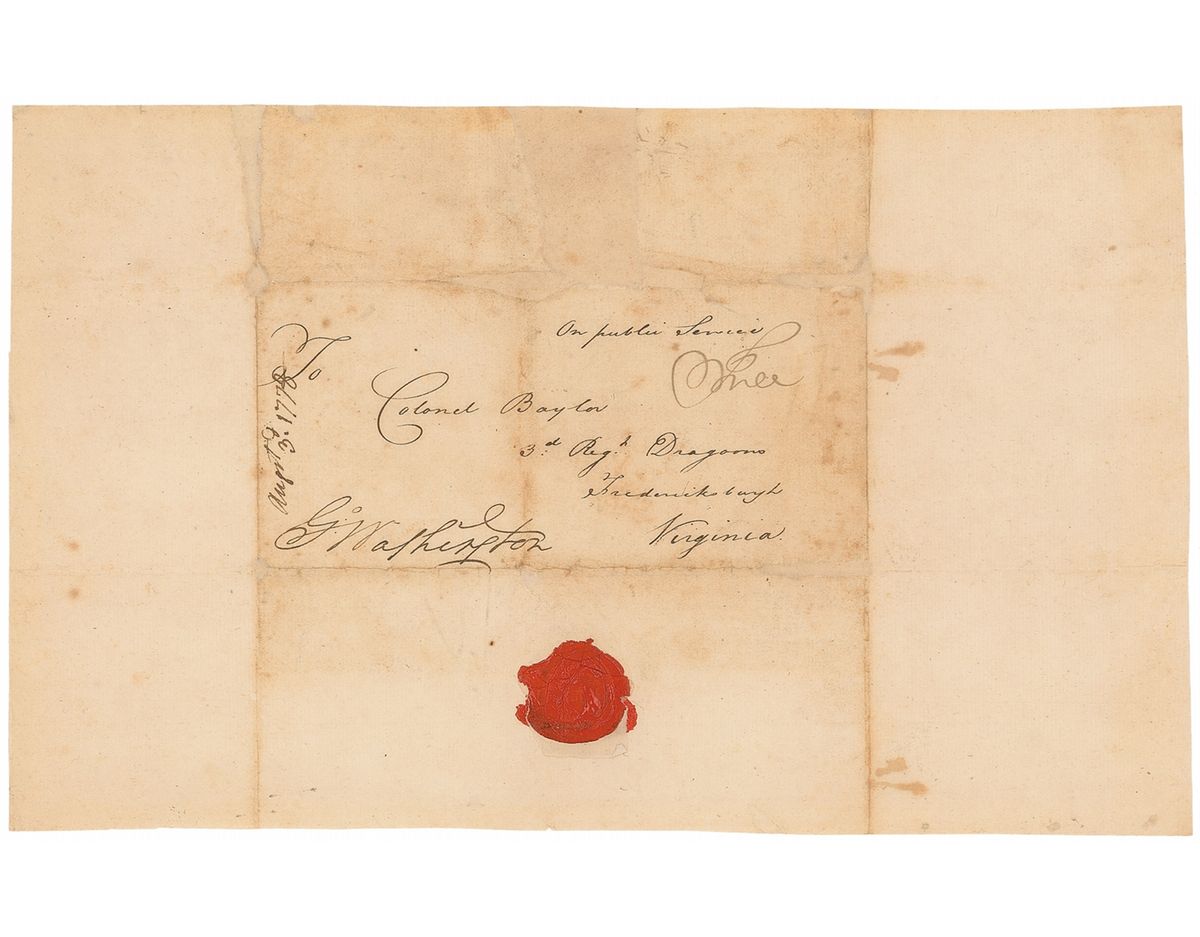 On public Service
Free
To
Colonel Baylor
3.d Reg.t Dragoons
Fredericksburgh
Virginia
Go: Washington
3.d 1778